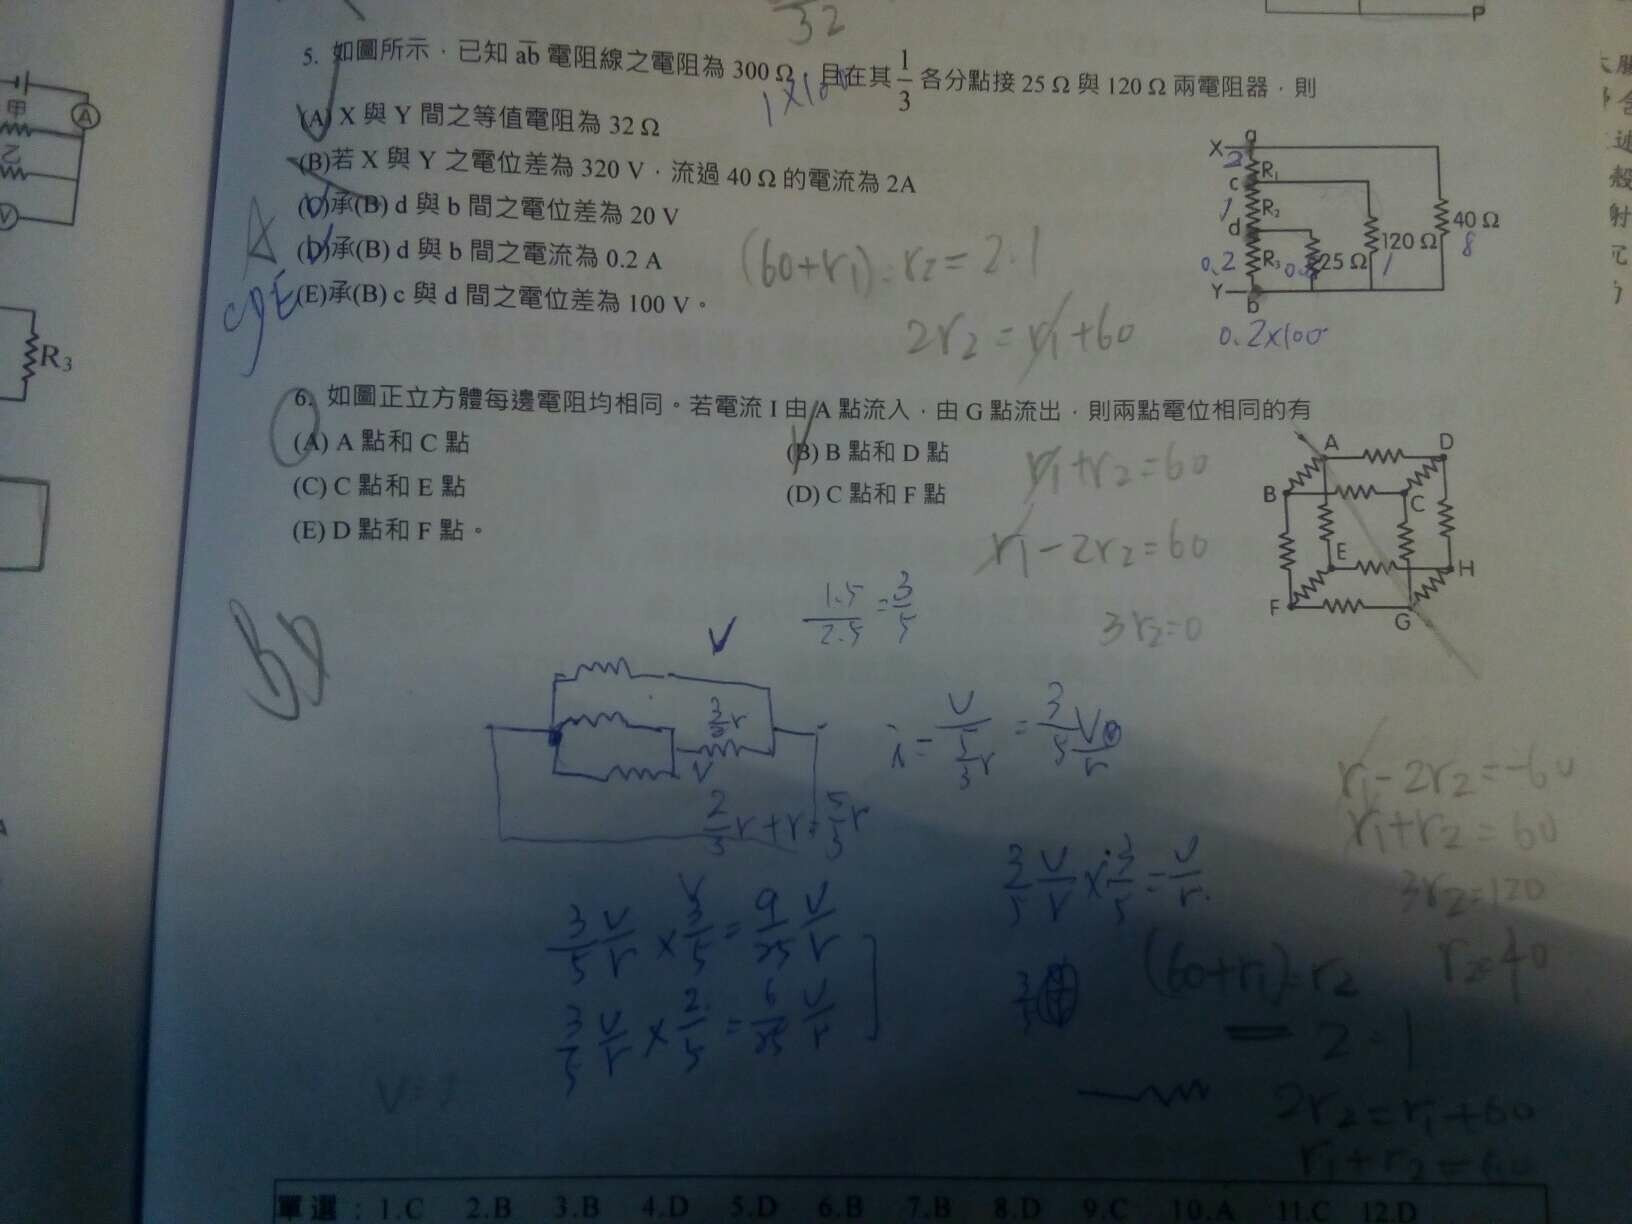 32
P
5. 如圖所示，已知 ab 電阻線之電阻為 300 Ω，且在其 1/3 各分點接 25 Ω 與 120 Ω 兩電阻器，則
(A) X 與 Y 間之等值電阻為 32 Ω
(B)若 X 與 Y 之電位差為 320 V，流過 40 Ω 的電流為 2A
(C)承(B) d 與 b 間之電位差為 20 V
(D)承(B) d 與 b 間之電流為 0.2 A
(E)承(B) c 與 d 間之電位差為 100 V。
甲
A
乙
V
R3
X
a
2
R1
c
1
R2
d
0.2
R3
25 Ω
120 Ω
1
40 Ω
8
Y
b
0.2×100
(60+r1):r2=2:1
2r2=r1+60
6. 如圖正立方體每邊電阻均相同。若電流 I 由 A 點流入，由 G 點流出，則兩點電位相同的有
(A) A 點和 C 點
(B) B 點和 D 點
(C) C 點和 E 點
(D) C 點和 F 點
(E) D 點和 F 點。
A
D
B
C
E
H
F
G
r1+r2=60
r1-2r2=60
3r2=0
1.5/2.5=3/5
BD
V
2/3r+r=5/3r
i=V/(5/3r)=3/5 V/r
3/5 V/r×3/5=9/25 V/r
3/5 V/r×2/5=6/25 V/r
r1-2r2=-60
r1+r2=60
3r2=120
r2=40
(60+r1):r2
=2:1
2r2=r1+60
r1+r2=60
單選：1.C 2.B 3.B 4.D 5.D 6.B 7.B 8.D 9.C 10.A 11.C 12.D